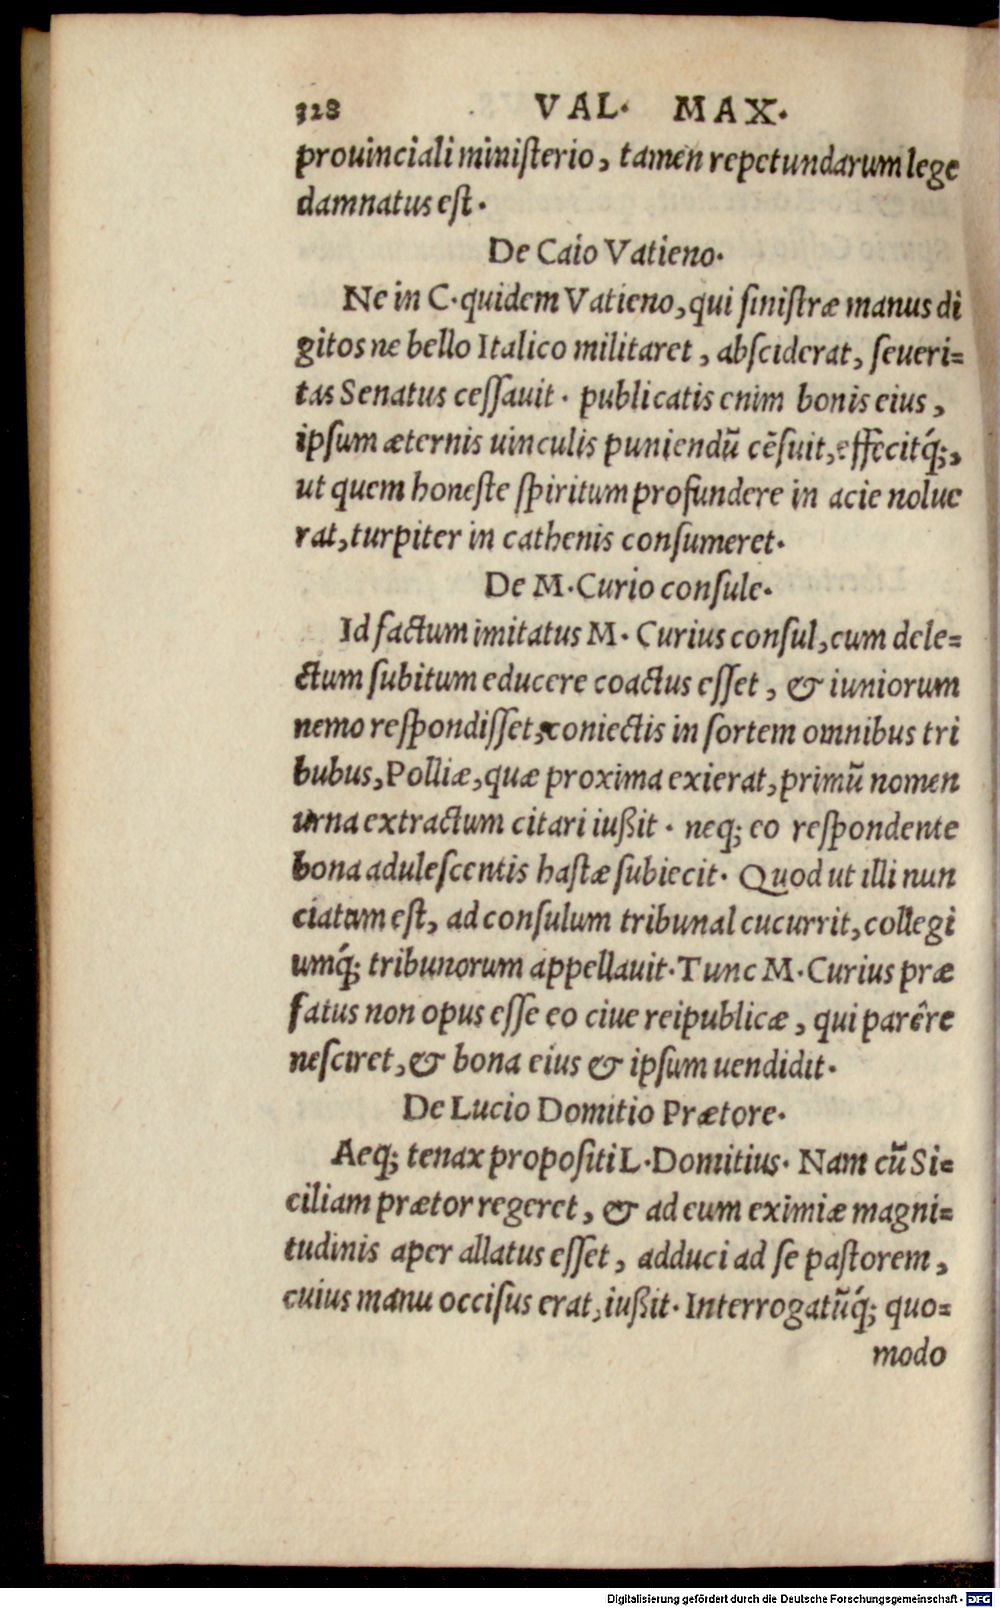 328 VAL. MAX.
prouinciali ministerio, tamen repetundarum lege
damnatus est.
De Caio Vatieno.
Ne in C. quidem Vatieno, qui sinistræ manus di
gitos ne bello Italico militaret, absciderat, seueri=
tas Senatus cessauit. publicatis enim bonis eius,
ipsum æternis uinculis puniendũ cẽsuit, effecitq́;,
ut quem honeste spiritum profundere in acie nolue
rat, turpiter in cathenis consumeret.
De M. Curio consule.
Id factum imitatus M. Curius consul, cum dele=
ctum subitum educere coactus esset, & iuniorum
nemo respondisset, coniectis in sortem omnibus tri
bubus, Polliæ, quæ proxima exierat, primũ nomen
urna extractum citari iußit. neq; eo respondente
bona adulescentis hastæ subiecit. Quod ut illi nun
ciatum est, ad consulum tribunal cucurrit, collegi
umq́; tribunorum appellauit. Tunc M. Curius præ
fatus non opus esse eo ciue reipublicæ, qui parêre
nesciret, & bona eius & ipsum uendidit.
De Lucio Domitio Prætore.
Aeq; tenax propositi L. Domitius. Nam cũ Si=
ciliam prætor regeret, & ad eum eximiæ magni=
tudinis aper allatus esset, adduci ad se pastorem,
cuius manu occisus erat, iußit. Interrogatũq́; quo=
modo
Digitalisierung gefördert durch die Deutsche Forschungsgemeinschaft - DFG